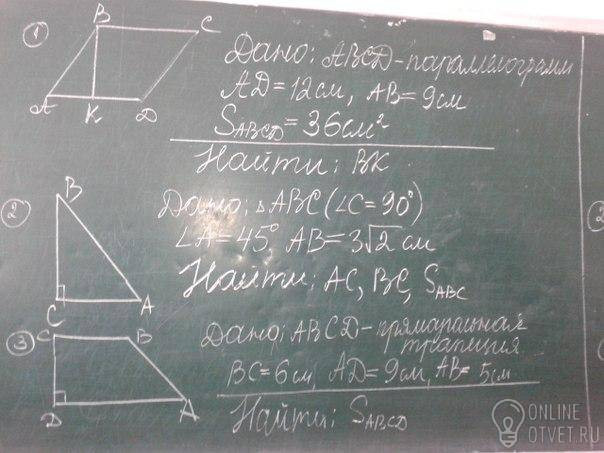 1
B C
A K D
Дано: ABCD-параллелограмм
AD=12см, AB=9см
S_ABCD=36см²
Найти: BK
2
B
C A
Дано: △ABC(∠C=90°)
∠A=45° AB=3√2 см
Найти: AC, BC, S_ABC
3
C B
D A
Дано: ABCD-прямоугольная
трапеция
BC=6см, AD=9см, AB=5см
Найти: S_ABCD
ONLINE
OTVET.RU